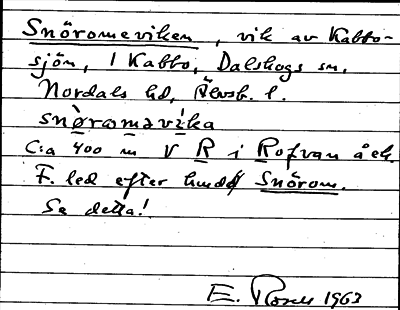 Snöromeviken, vik av Kabbo-
sjön, i Kabbo, Dalskogs sn,
Nordals hd, Älvsb. l.
snø̀ramavìka
C:a 400 m V R i Rofvan å ek.
F. led efter hmdf Snörom.
Se detta!
E. Rosell 1963